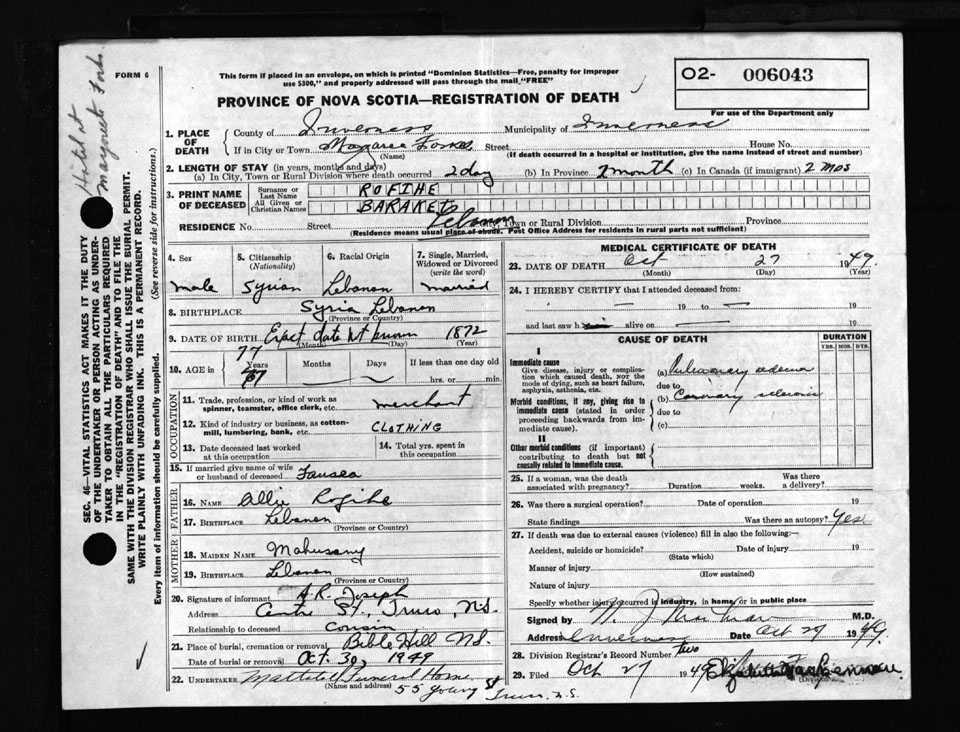 FORM 6
This form if placed in an envelope, on which is printed "Dominion Statistics—Free, penalty for improper
use $300," and properly addressed will pass through the mail "FREE"
PROVINCE OF NOVA SCOTIA—REGISTRATION OF DEATH
O2- 006043
For use of the Department only
at
Margaret Forks
SEC. 46—VITAL STATISTICS ACT MAKES IT THE DUTY
OF THE UNDERTAKER OR PERSON ACTING AS UNDER-
TAKER TO OBTAIN ALL THE PARTICULARS REQUIRED
IN THE "REGISTRATION OF DEATH" AND TO FILE THE
SAME WITH THE DIVISION REGISTRAR WHO SHALL ISSUE THE BURIAL PERMIT.
WRITE PLAINLY WITH UNFADING INK. THIS IS A PERMANENT RECORD.
Every item of information should be carefully supplied. (See reverse side for instructions.)
1. PLACE OF DEATH
County of Inverness Municipality of Inverness
If in City or Town Margaree Forks Street House No.
(Name) (If death occurred in a hospital or institution, give the name instead of street and number)
2. LENGTH OF STAY (in years, months and days)
(a) In City, Town or Rural Division where death occurred 2 day (b) In Province 2 month (c) In Canada (if immigrant) 2 mos
3. PRINT NAME OF DECEASED
Surname or Last Name ROFIHE
All Given or Christian Names BARAKET
RESIDENCE No. Street Lebanon City, Town or Rural Division Province
(Residence means usual place of abode. Post Office Address for residents in rural parts not sufficient)
4. Sex 5. Citizenship (Nationality) 6. Racial Origin 7. Single, Married, Widowed or Divorced (write the word)
male Syrian Lebanon married
8. BIRTHPLACE Syria Lebanon
(Province or Country)
9. DATE OF BIRTH Exact date not known 1872
(Month) (Day) (Year)
10. AGE in 77 Years Months Days If less than one day old
hrs. or min.
OCCUPATION
11. Trade, profession, or kind of work as spinner, teamster, office clerk, etc. merchant
12. Kind of industry or business, as cotton-mill, lumbering, bank, etc. CLOTHING
13. Date deceased last worked at this occupation 14. Total yrs. spent in this occupation
15. If married give name of wife or husband of deceased Fausea
FATHER
16. Name Allie Rofihe
17. BIRTHPLACE Lebanon
(Province or Country)
MOTHER
18. MAIDEN NAME Mahusany
19. BIRTHPLACE Lebanon
(Province or Country)
20. Signature of informant A.R. Joseph
Address Centre St., Truro, N.S.
Relationship to deceased Cousin
21. Place of burial, cremation or removal Bible Hill N.S.
Date of burial or removal Oct. 30, 1949
22. UNDERTAKER Funeral Home
(Name and address) 55 Young St
Truro N.S.
MEDICAL CERTIFICATE OF DEATH
23. DATE OF DEATH Oct 27 1949.
(Month) (Day) (Year)
24. I HEREBY CERTIFY that I attended deceased from:
19 to 19
and last saw h alive on 19
CAUSE OF DEATH DURATION
YRS. MOS. DYS.
I
Immediate cause
Give disease, injury or complication which caused death, nor the mode of dying, such as heart failure, asphyxia, asthenia, etc.
(a) Pulmonary edema
due to
Morbid conditions, if any, giving rise to immediate cause (stated in order proceeding backwards from immediate cause).
(b) Coronary sclerosis
due to
(c)
II
Other morbid conditions (if important) contributing to death but not causally related to immediate cause.
25. If a woman, was the death associated with pregnancy? Duration weeks. Was there a delivery?
26. Was there a surgical operation? Date of operation 19
State findings Was there an autopsy? Yes.
27. If death was due to external causes (violence) fill in also the following:—
Accident, suicide or homicide? Date of injury 19
(State which)
Manner of injury
(How sustained)
Nature of injury
Specify whether injury occurred in industry, in home or in public place
Signed by M.D.
Address Inverness Date Oct 27 1949.
28. Division Registrar's Record Number Two
29. Filed Oct 27 1949
(Division